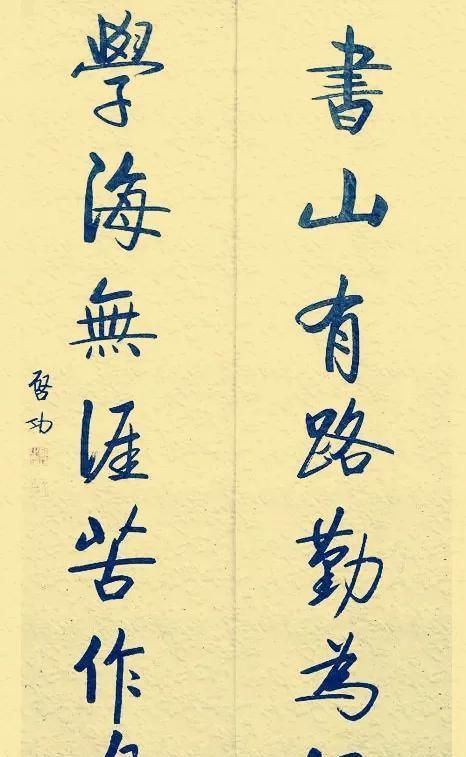 書山有路勤為
學海無涯苦作
啓功